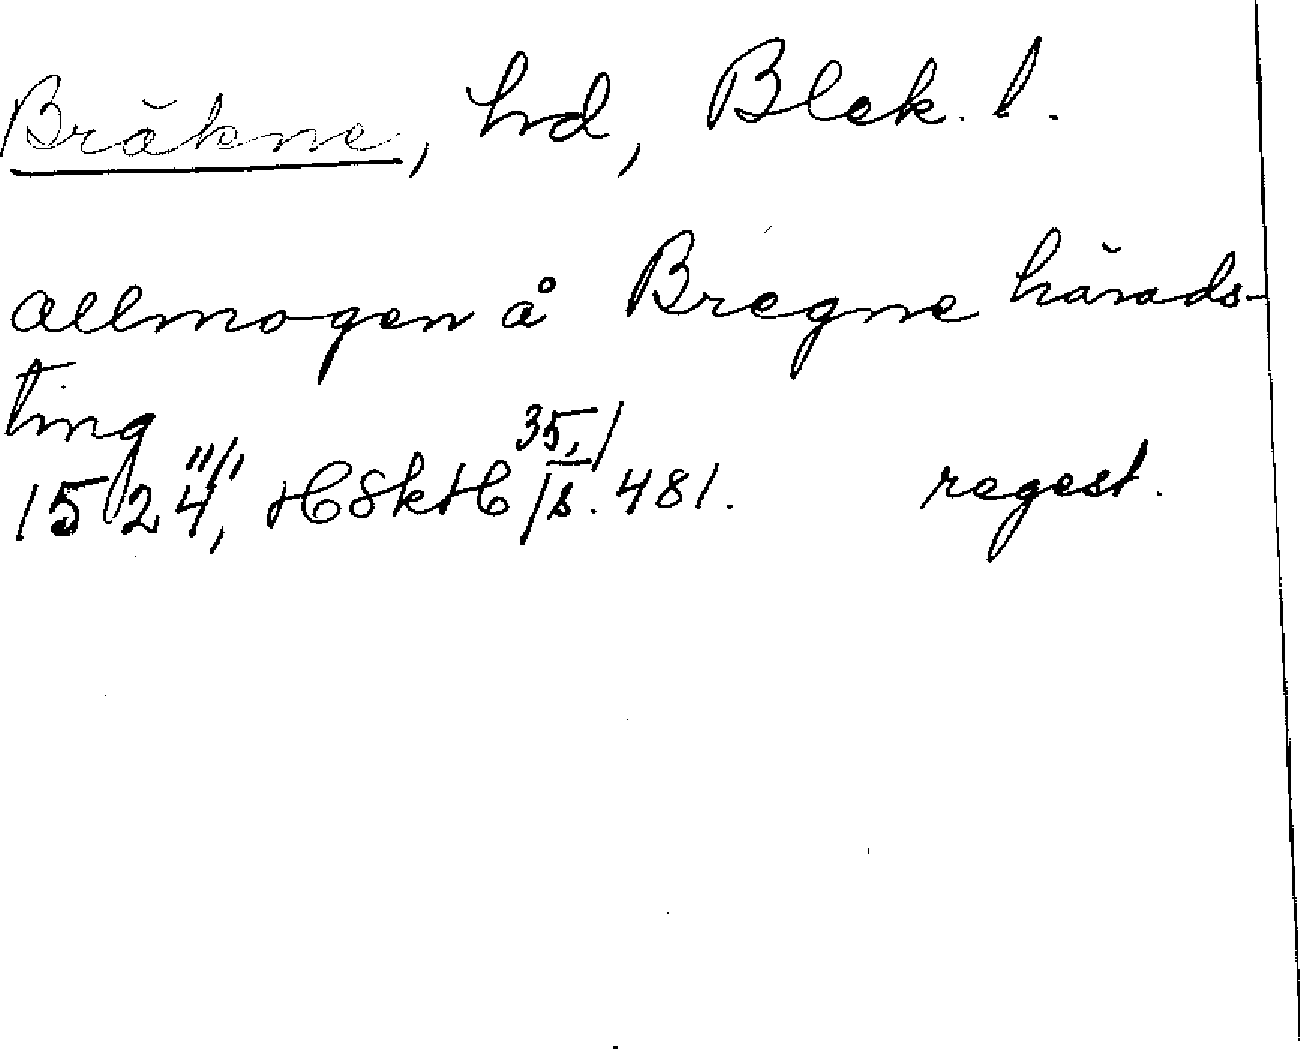 Bräkne, hd, Blek. l.
allmogen å Bregne härads-
ting
1524 11/1, HSkH 35,1/s. 481. regest.